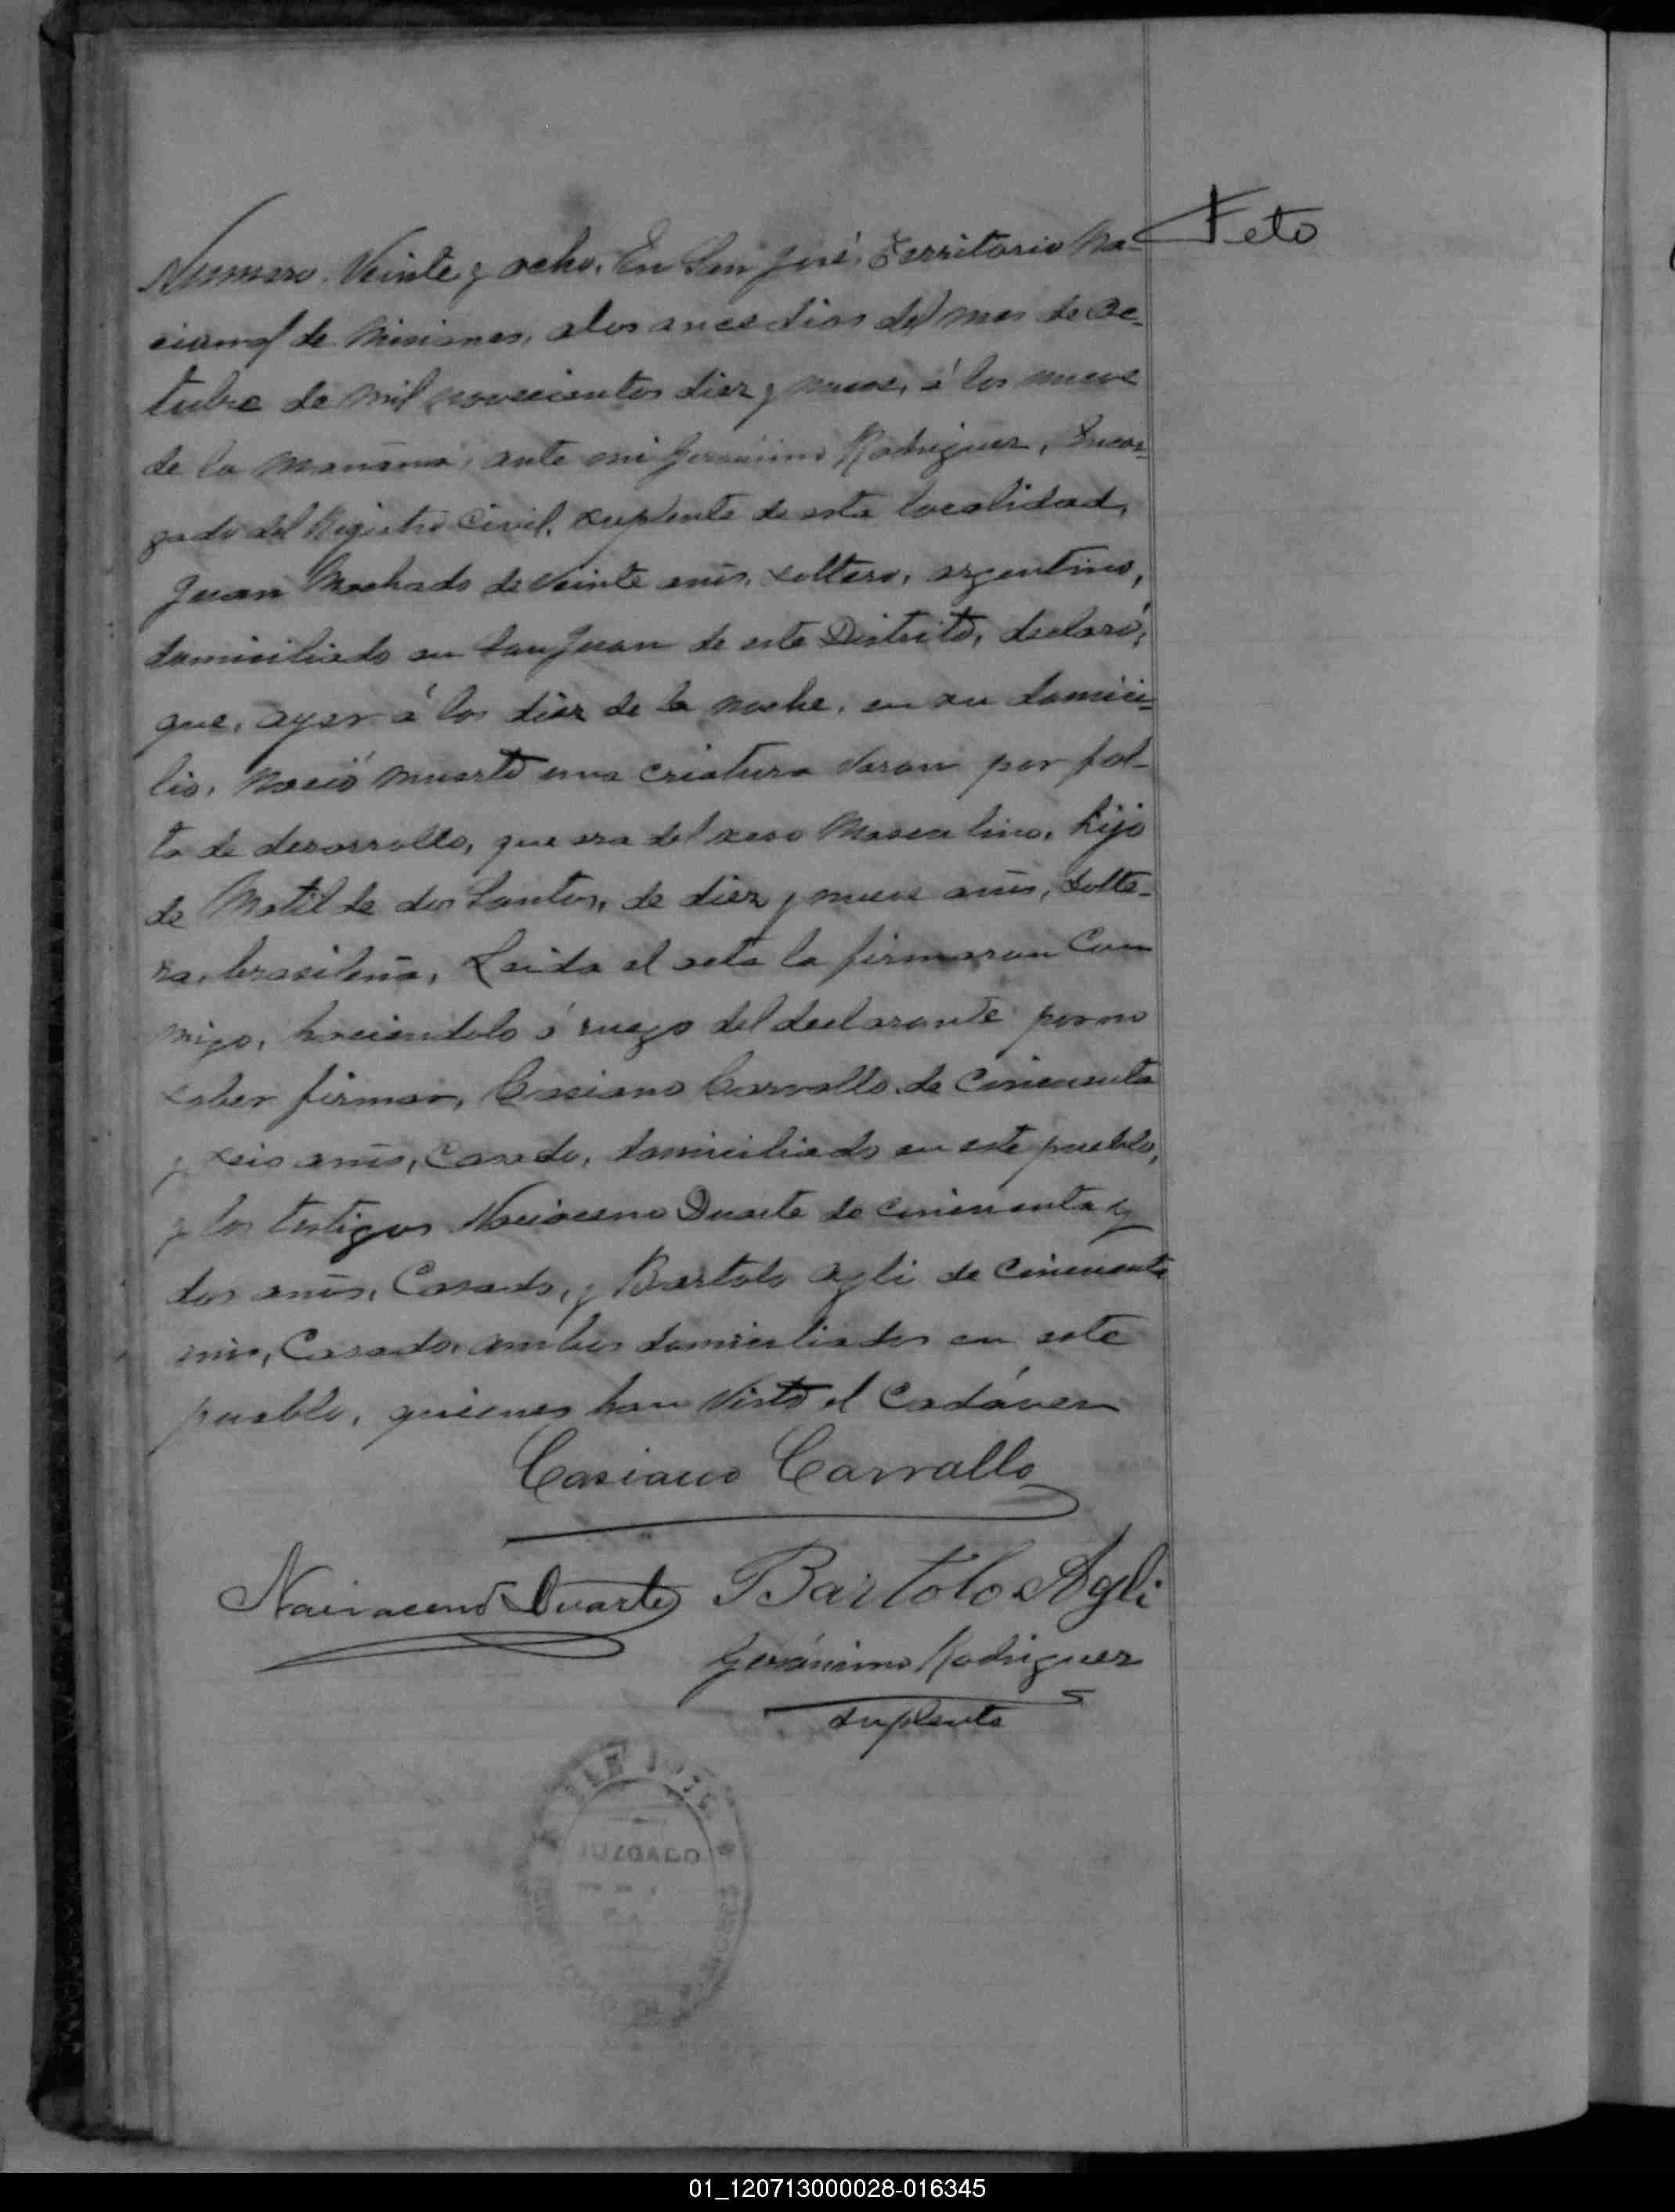 Feto
Numero Veinte y ocho. En San José, Territorio Na-
cional de Misiones, a los once dias del mes de Oc-
tubre de mil novecientos diez y nueve, á las nueve
de la mañana, ante mi Gerónimo Rodriguez, Encar-
gado del Registro Civil, suplente de esta localidad,
Juan Machado de veinte años, soltero, argentino,
domiciliado en San Juan de este Distrito, declaró,
que, ayer á las diez de la noche, en su domici-
lio, Nació muerto una criatura varon por fal-
ta de desarrollo, que era del sexo Masculino, hijo
de Matilde dos Santos, de diez y nueve años, solte-
ra, brasileña, Leida el acta la firmaron Con
migo, haciendolo á ruego del declarante por no
saber firmar, Casiano Carvallo de Cincuenta
y seis años, Casado, domiciliado en este pueblo,
y los testigos Duarte de cincuenta y
dos años, Casado, y Bartolo Agli de Cincuenta
años, Casado, ambos domiciliados en este
pueblo, quienes han Visto el Cadáver
Casiano Carvallo
Duarte Bartolo Agli
Gerónimo Rodriguez
suplente
SAN JOSE
JUZGADO
01_120713000028-016345